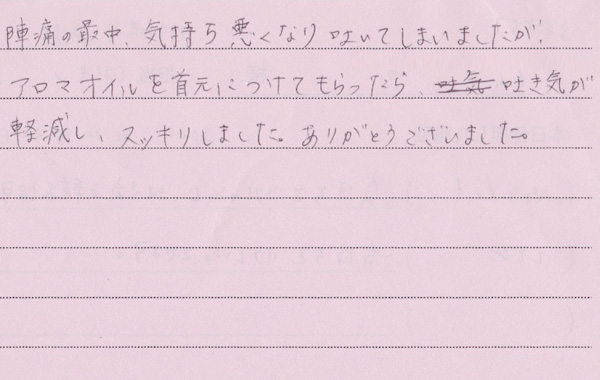 陣痛の最中、気持ち悪くなり吐いてしまいましたが、
アロマオイルを首元につけてもらったら、吐気 吐き気が
軽減し、スッキリしました。ありがとうございました。